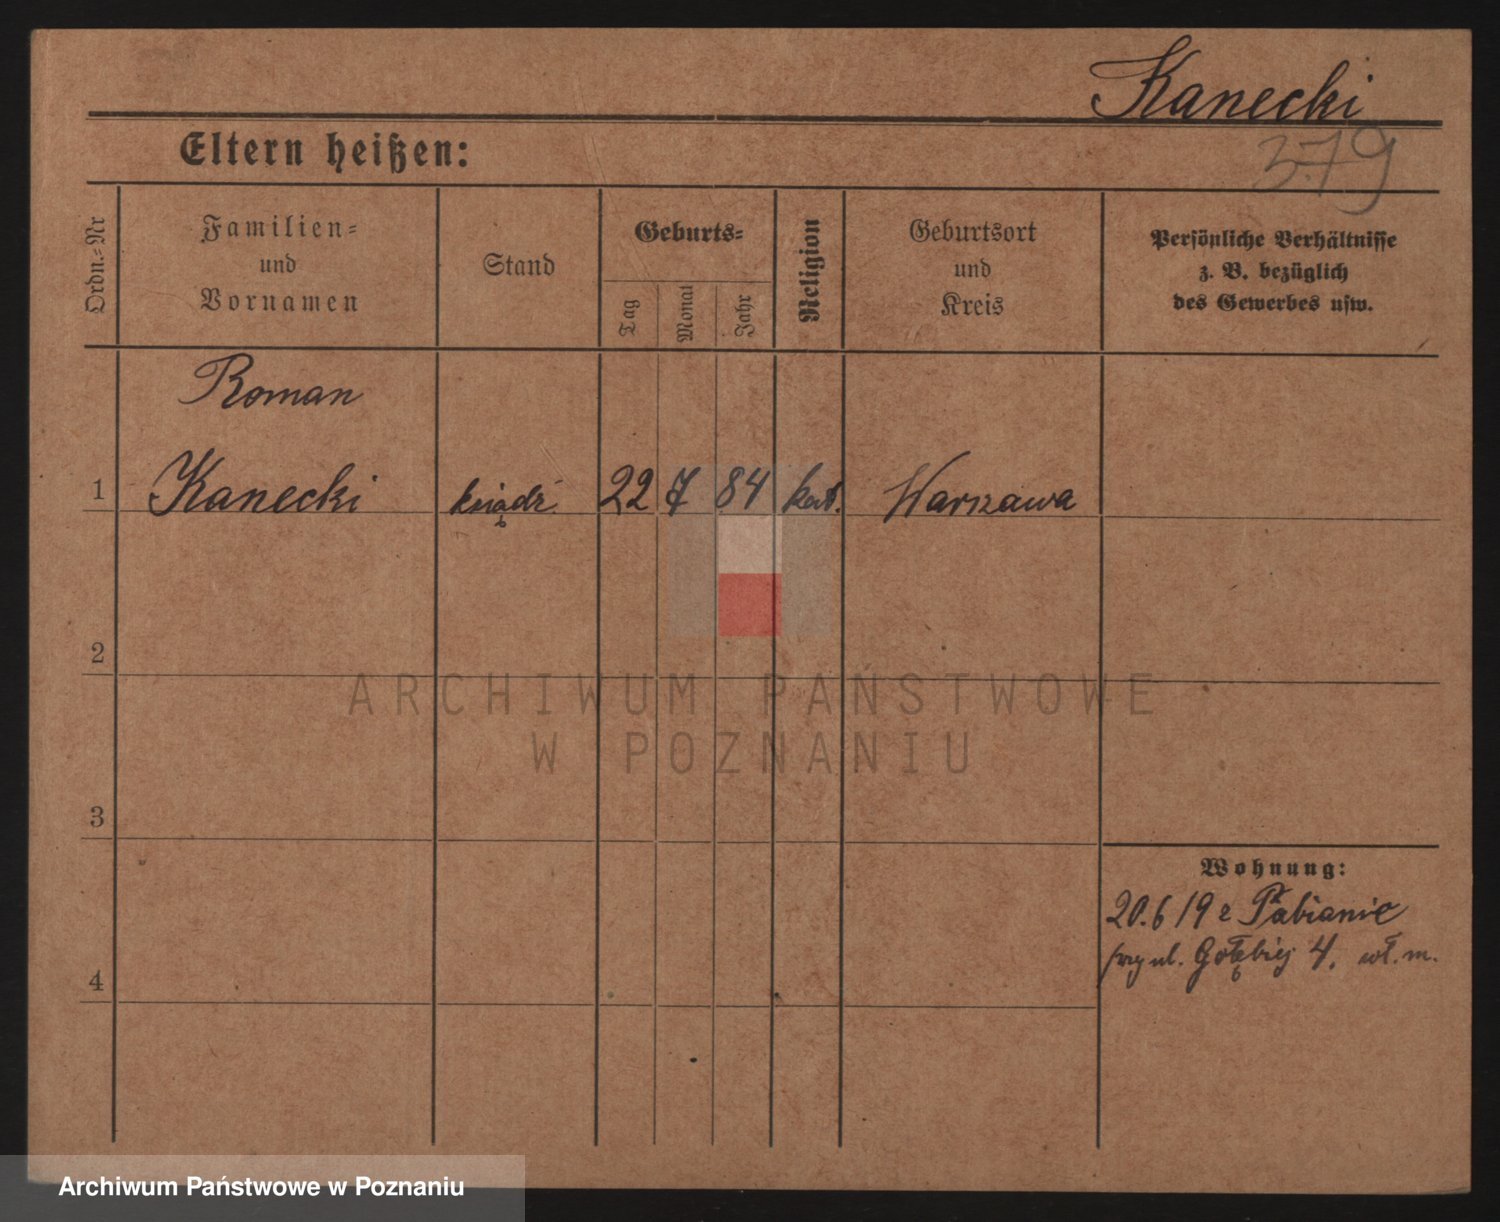 Kanecki
379
Eltern heißen:
Ordn.=Nr
Familien=
und
Vornamen
Stand
Geburts=
Tag
Monat
Jahr
Religion
Geburtsort
und
Kreis
Persönliche Verhältnisse
z. B. bezüglich
des Gewerbes usw.
Roman
1 Kanecki ksiądz 22 7 84 kat. Warszawa
2
3
4
Wohnung:
20.6 19 z Pabianic
przy ul. Gołębiej 4. wł. m.
ARCHIWUM PAŃSTWOWE
W POZNANIU
Archiwum Państwowe w Poznaniu